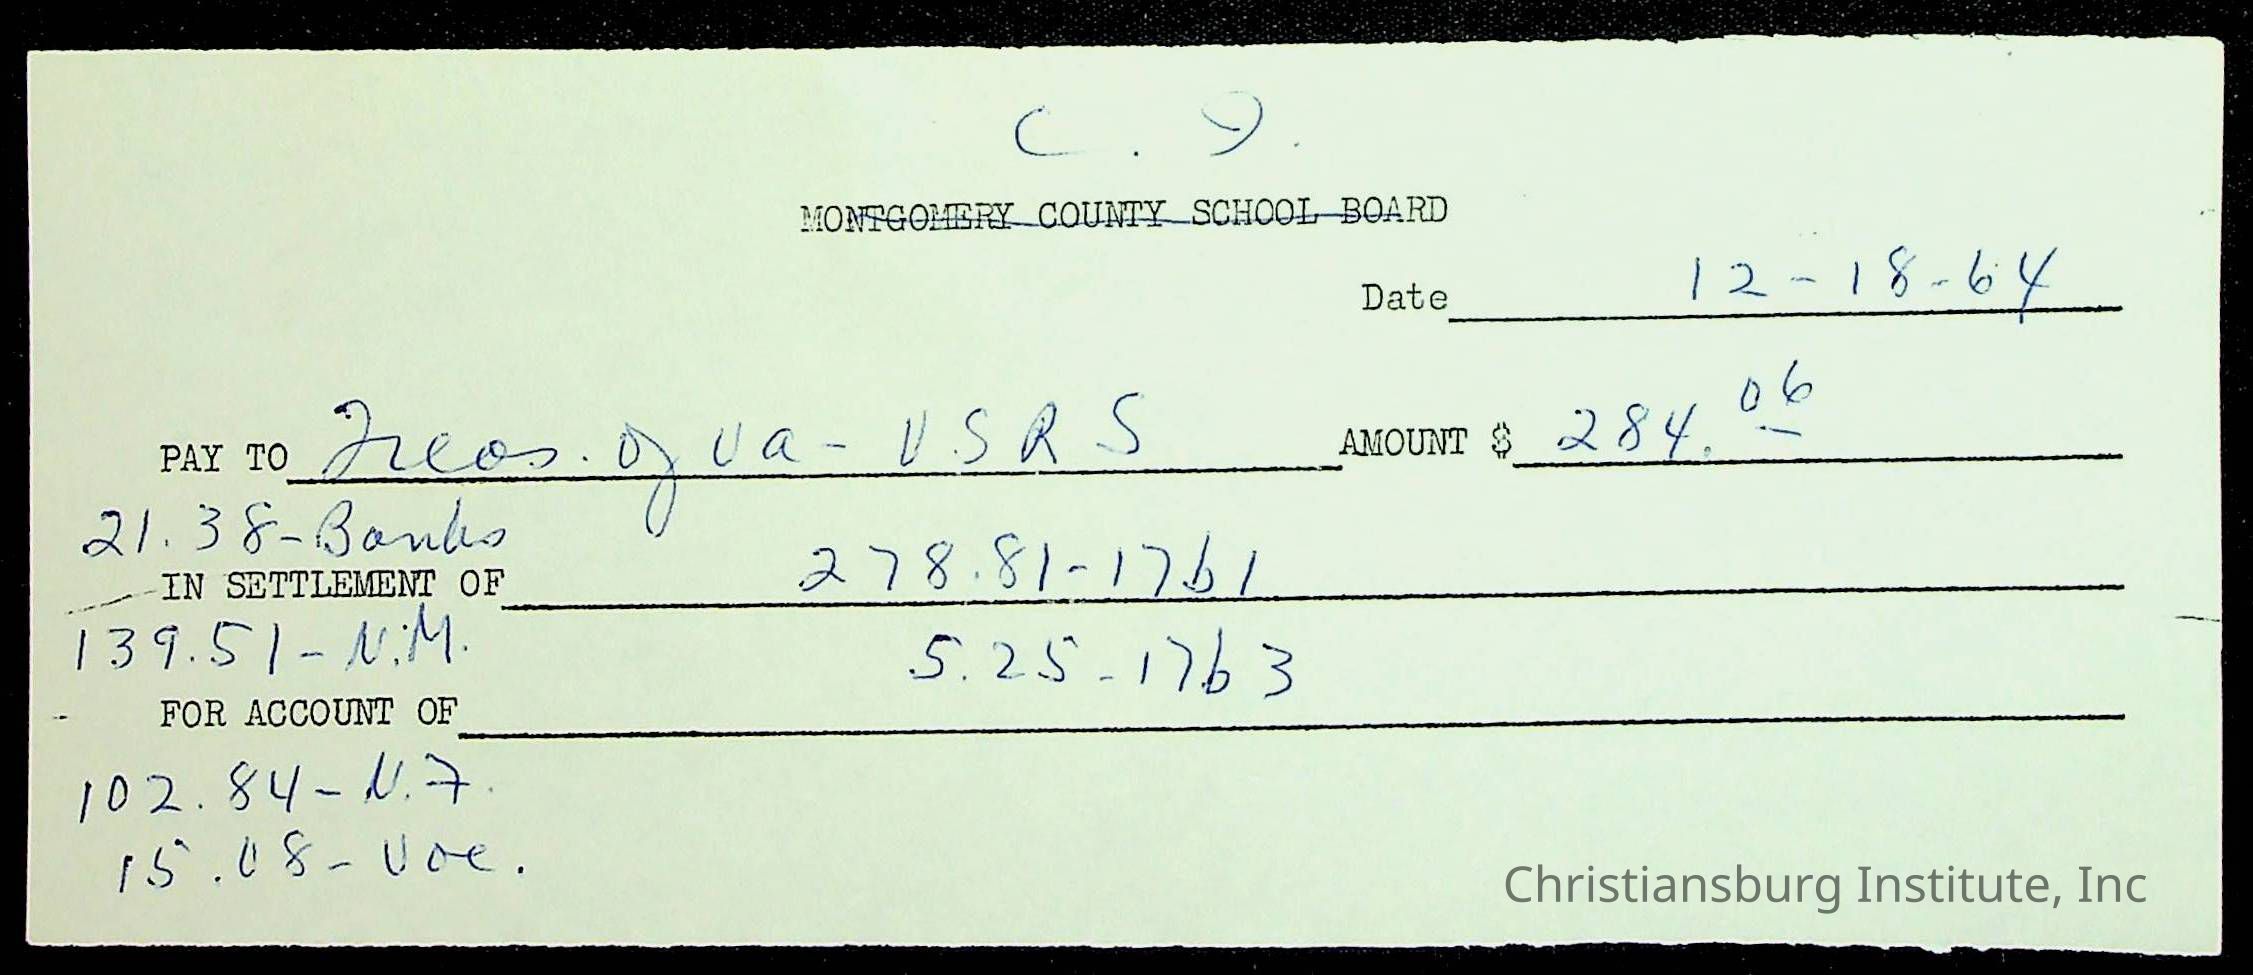 C. I.
MONTGOMERY COUNTY SCHOOL BOARD
Date 12-18-64
PAY TO Treas. of Va - VSRS AMOUNT $ 284.06
21.38-Banks
IN SETTLEMENT OF 278.81-17b1
139.51-N.M.
5.25-17b3
FOR ACCOUNT OF
102.84-N.F.
15.08-Voc.
Christiansburg Institute, Inc